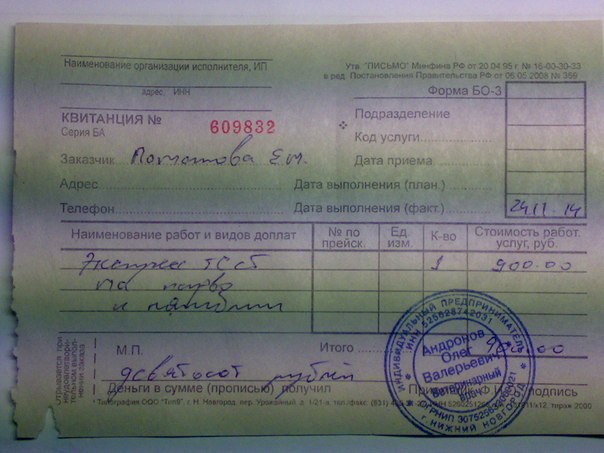 Наименование организации исполнителя, ИП
Утв. "ПИСЬМО" Минфина РФ от 20.04.95 г. № 16-00-30-33
в ред. Постановления Правительства РФ от 06.05.2008 № 359
адрес, ИНН
Форма БО-3
КВИТАНЦИЯ №
Серия БА
609832
Подразделение
Код услуги
Заказчик
Дата приема
Адрес
Дата выполнения (план.)
Телефон
Дата выполнения (факт.) 24.11.14
Наименование работ и видов доплат
№ по прейск.
Ед. изм.
К-во
Стоимость работ, услуг, руб.
Экспресс тест 1 900.00
на парво
и
М.П.
Итого
девятьсот рублей
Деньги в сумме (прописью) получил
подпись
* Типография ООО "Тип9", г. Н. Новгород, пер. Урожайный, д. 1/21-а, тел./факс: (831)
тираж 2000
ИНДИВИДУАЛЬНЫЙ ПРЕДПРИНИМАТЕЛЬ
Андронов
Олег
Валерьевич
Ветеринарный
врач
Г.НИЖНИЙ НОВГОРОД